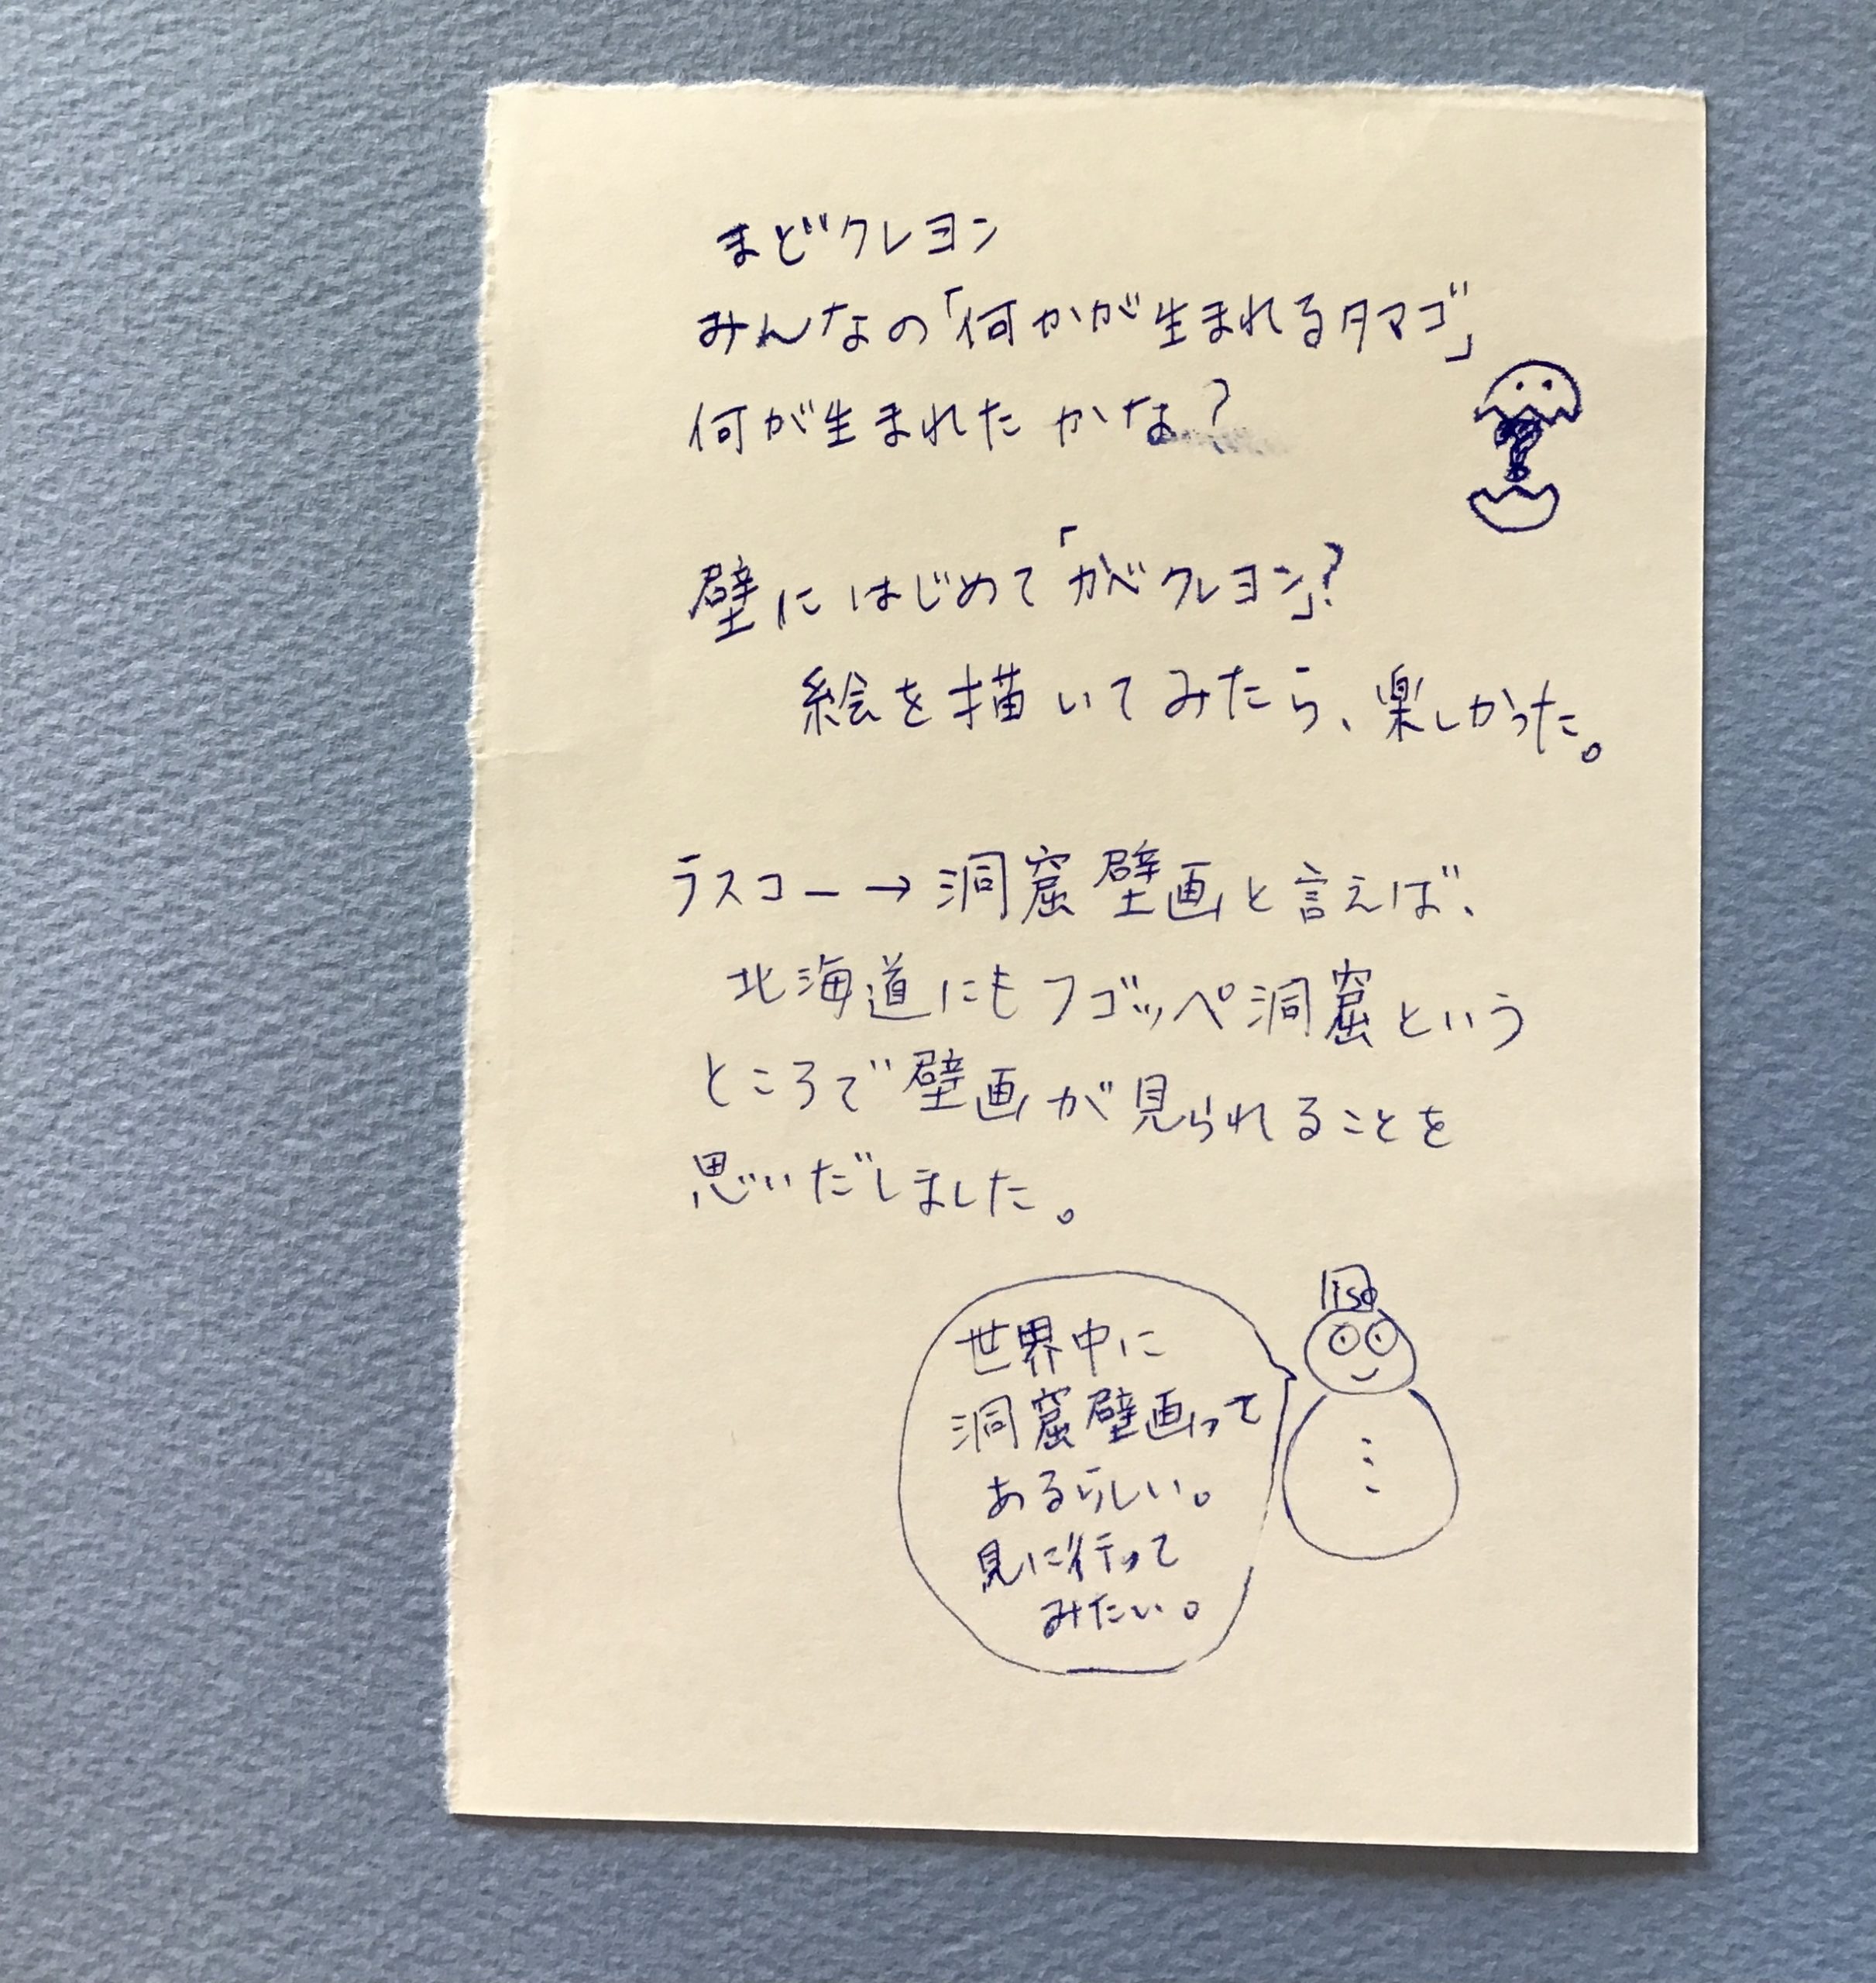 まどクレヨン
みんなの「何かが生まれるタマゴ」
何が生まれたかな?
壁にはじめて「かべクレヨン」?
絵を描いてみたら、楽しかった。
ラスコー→洞窟壁画と言えば、
北海道にもフゴッペ洞窟という
ところで壁画が見られることを
思いだしました。
lisa
世界中に
洞窟壁画って
あるらしい。
見に行って
みたい。